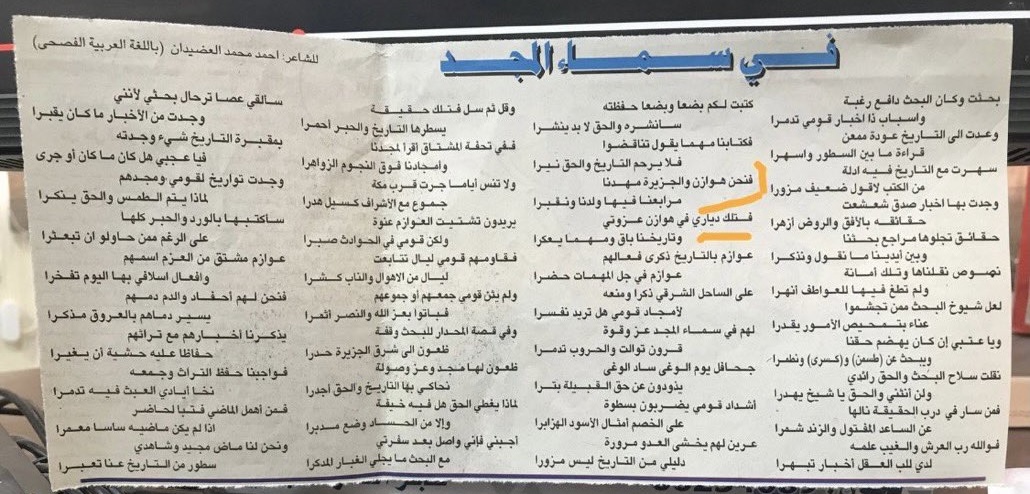 في سماء المجد
للشاعر: احمد محمد العضيدان (باللغة العربية الفصحى)
بحثت وكان البحث دافع رغبة
واسباب ذا اخبار قومي تدمرا
وعدت الى التاريخ عودة ممعن
قراءة ما بين السطور واسهرا
سهرت مع التاريخ فيه ادلة
من الكتب لاقول ضعيف مزورا
وجدت بها اخبار صدق شعشعت
حقائقه بالأفق والروض ازهرا
حقائق تجلوها مراجع بحثنا
وبين أيدينا ما نقول ونذكرا
نصوص نقلناها وتلك أمانة
ولم تطغ فيها للعواطف أنهرا
لعل شيوخ البحث ممن تجشموا
عناء بتمحيص الأمور يقدرا
ويا عتبي إن كان يهضم حقنا
ويبحث عن (طسمن) و(كسرى) ونطمرا
نقلت سلاح البحث والحق رائدي
ولن أنثني والحق يا شيخ يهدرا
فمن سار في درب الحقيقة نالها
عن الساعد المفتول والزند شمرا
فوالله رب العرش والغيب علمه
لدي للب العقل أخبار تبهرا
كتبت لكم بضعا وبضعا حفظته
سأنشره والحق لا بد ينشرا
فكتابنا مهما يقول تناقضوا
فلا يرحم التاريخ والحق نيرا
فنحن هوازن والجزيرة مهدنا
مرابعنا فيها ولدنا ونقبرا
فتلك دياري في هوازن عزوتي
وتاريخنا باق ومهما يعكرا
عوازم بالتاريخ ذكرى فعالهم
عوازم في جل المهمات حضرا
على الساحل الشرقي ذكرا ومنعه
لأمجاد قومي هل تريد نفسرا
لهم في سماء المجد عز وقوة
قرون توالت والحروب تدمرا
جحافل يوم الوغى ساد الوغى
يذودون عن حق القبيلة بترا
أشداد قومي يضربون بسطوة
على الخصم أمثال الأسود الهزابرا
عرين لهم يخشى العدو مرورة
دليلي من التاريخ ليس مزورا
وقل ثم سل فتلك حقيقة
يسطرها التاريخ والحبر أحمرا
ففي تحفة المشتاق اقرا لمجدنا
وامجادنا فوق النجوم الزواهرا
ولا تنس أياما جرت قرب مكة
جموع مع الأشراف كسيل هدرا
يريدون تشتيت العوازم عنوة
ولكن قومي في الحوادث صبرا
فقاومهم قومي ليال تتابعت
ليال من الاهوال والناب كشرا
ولم يثن قومي جمعهم أو جموعهم
فباتوا بعز الله والنصر أثمرا
وفي قصة المحدار للبحث وقفة
ظعون الى شرق الجزيرة حدرا
ظعون لها مجد وعز وصولة
نحاكي بها التاريخ والحق أجدرا
لماذا يغطي الحق هل فيه خيفة
وإلا من الحساد وضع مدبرا
أجبني فإني واصل بعد سفرتي
مع البحث ما يجلي الغبار المدكرا
سألقي عصا ترحال بحثي لأنني
وجدت من الأخبار ما كان يقبرا
بمقبرة التاريخ شيء وجدته
فيا عجبي هل كان ما كان أو جرى
وجدت تواريخ لقومي ومجدهم
لماذا يتم الطمس والحق ينكرا
سأكتبها بالورد والحبر كلها
على الرغم ممن حاولو ان تبعثرا
عوازم مشتق من العزم اسمهم
وافعال اسلافي بها اليوم تفخرا
فنحن لهم أحفاد والدم دمهم
يسير دماهم بالعروق مذكرا
يذكرنا أخبارهم مع تراثهم
حفاظا عليه خشية أن يغيرا
فواجبنا حفظ التراث وجمعه
نخا أيادي العبث فيه تدمرا
فمن أهمل الماضي فتيا لحاضر
اذا لم يكن ماضيه ساسا معمرا
ونحن لنا ماض مجيد وشاهدي
سطور من التاريخ عنا تعبرا